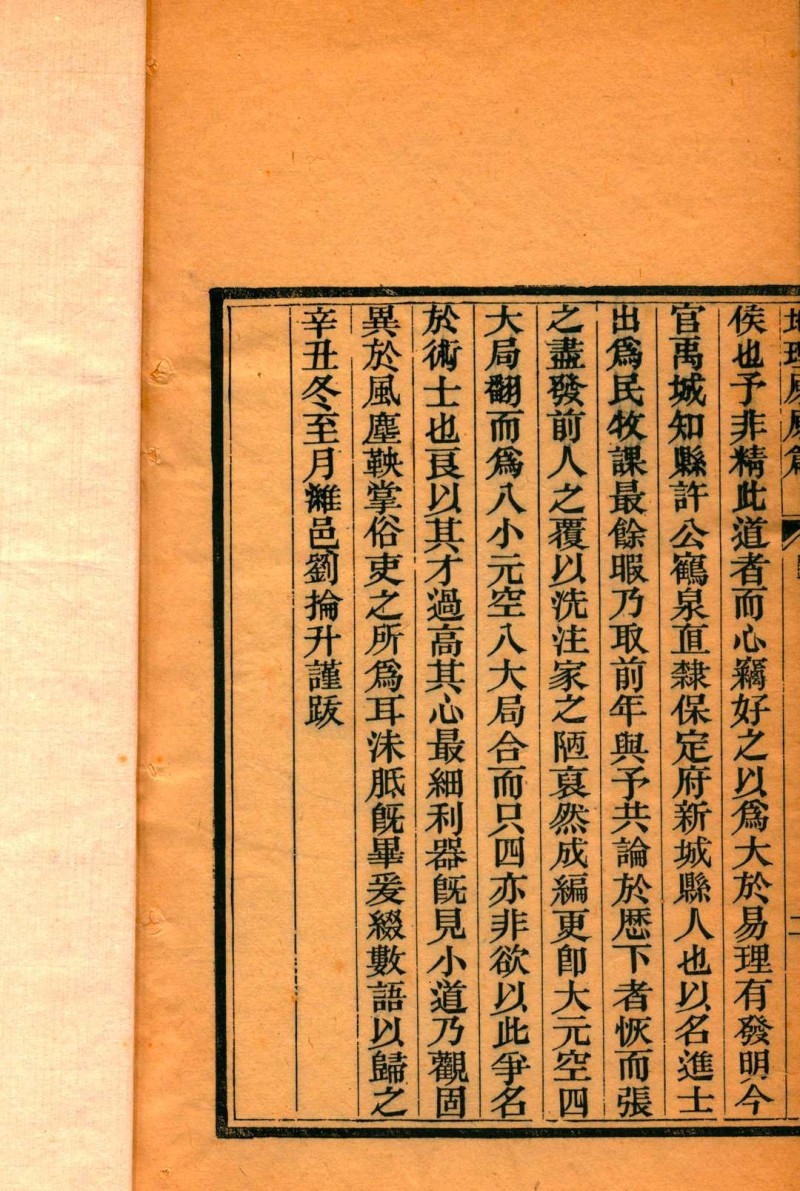 侯也予非精此道者而心竊好之以爲大於易理有發明今
官禹城知縣許公鶴泉直隸保定府新城縣人也以名進士
出爲民牧課最餘暇乃取前年與予共論於歷下者恢而張
之盡發前人之覆以洗注家之陋裒然成編更卽大元空四
大局翻而爲八小元空八大局合而只四亦非欲以此爭名
於術士也良以其才過高其心最細利器旣見小道乃觀固
異於風塵鞅掌俗吏之所爲耳洙胝旣畢爰綴數語以歸之
辛丑冬至月濰邑劉掄升謹跋